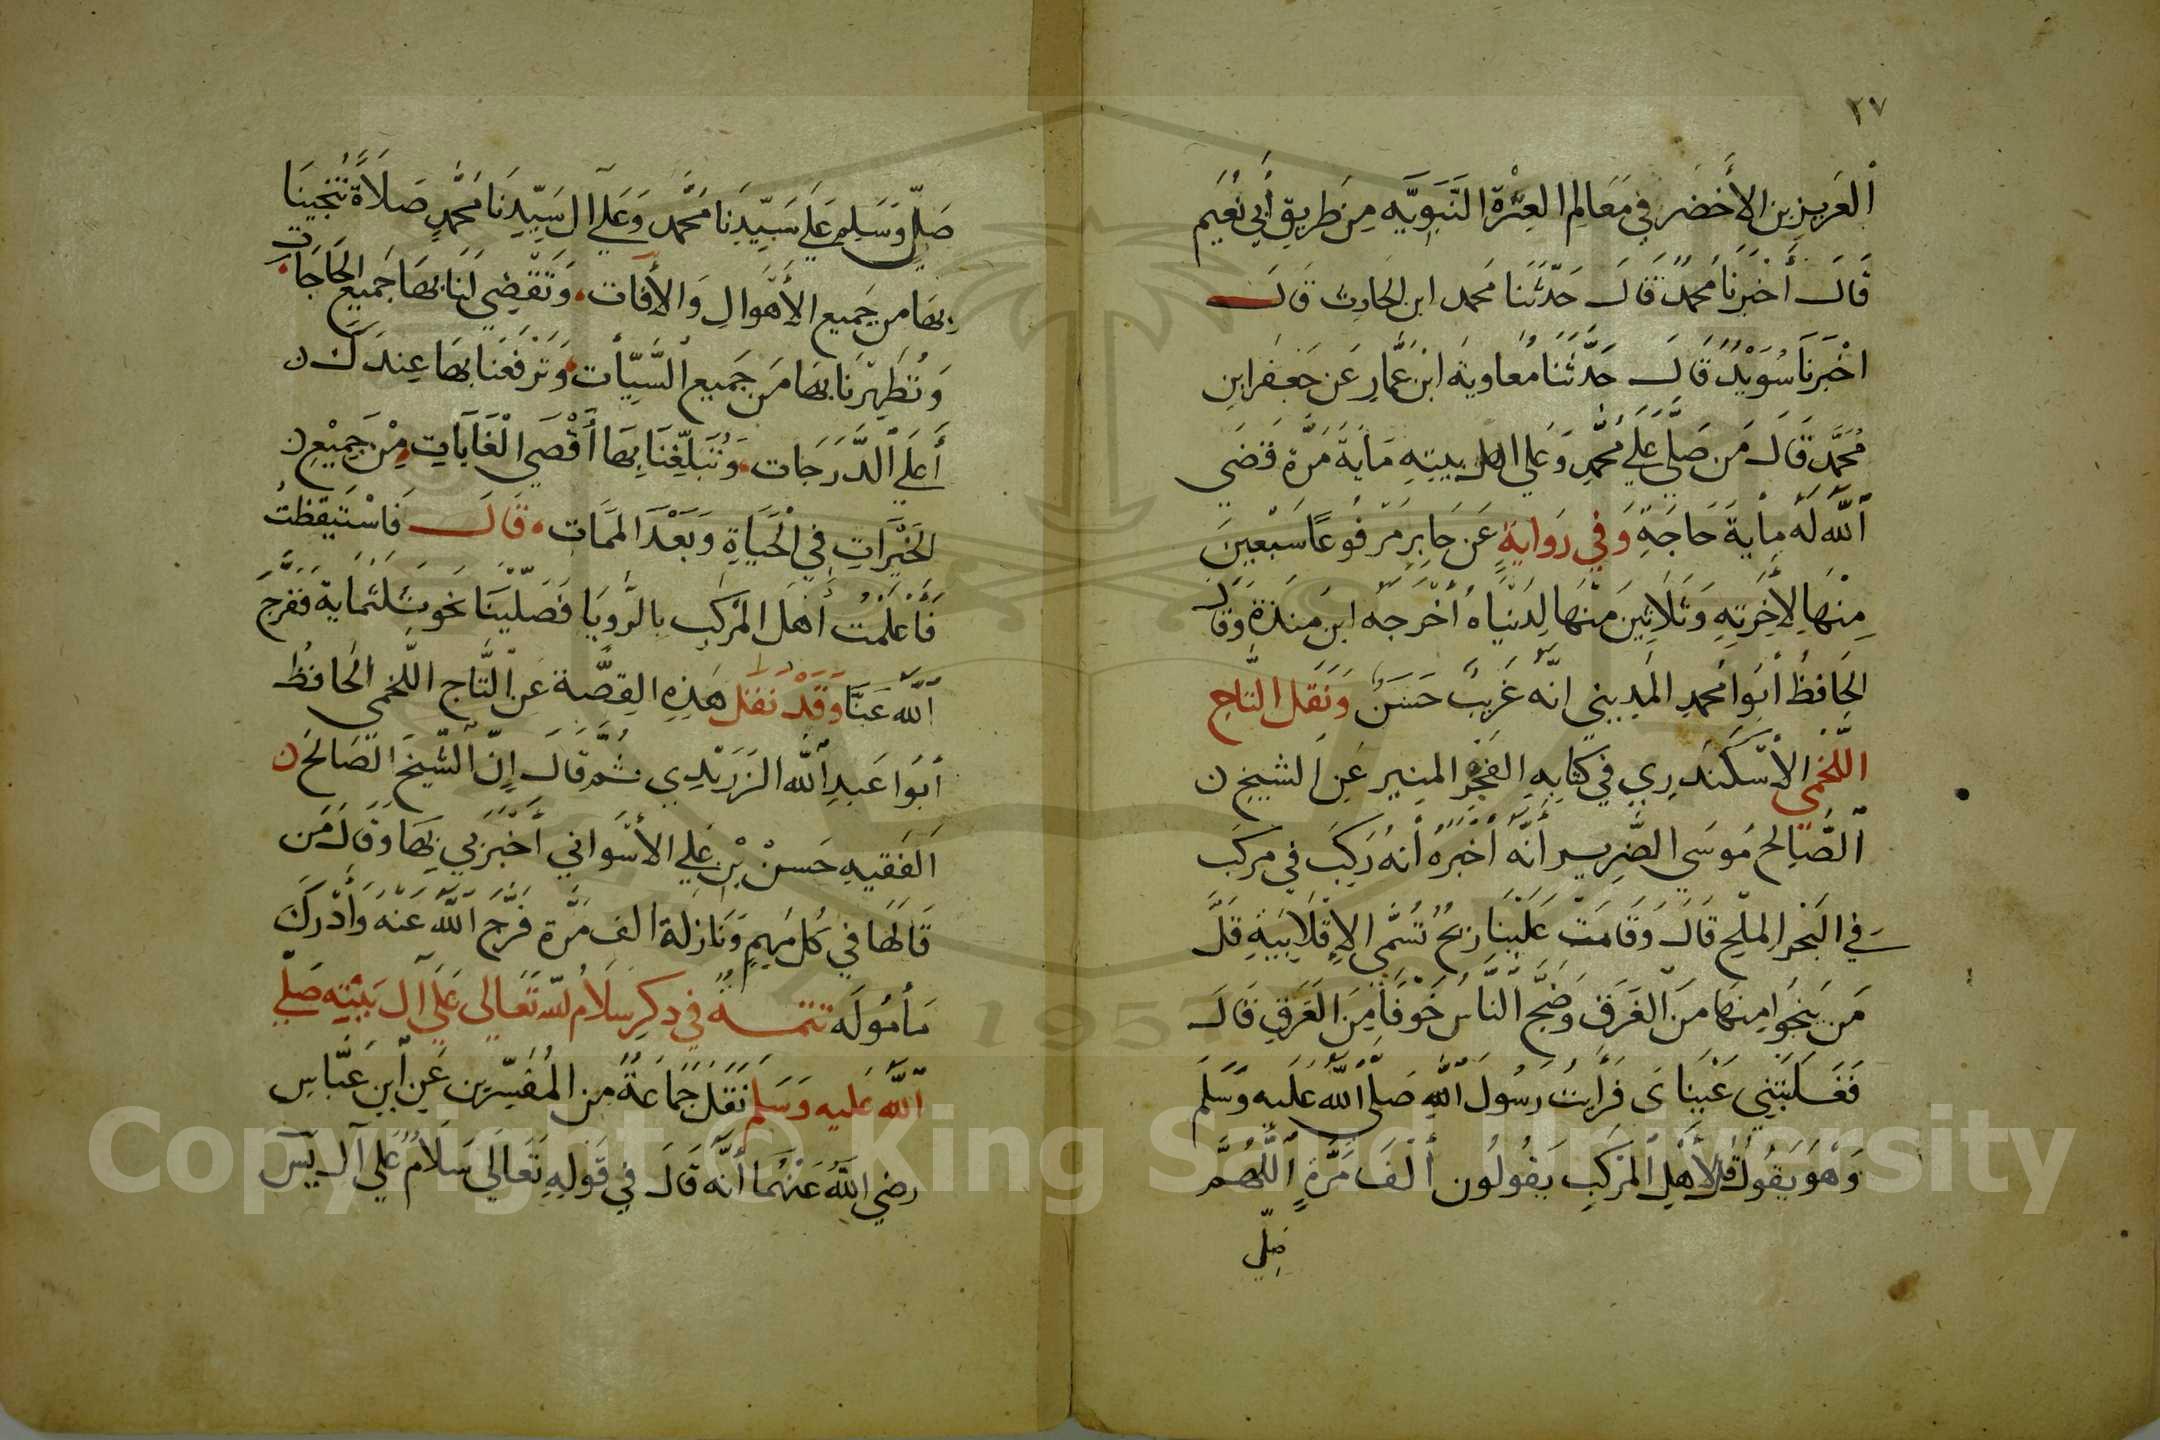 ٢٧
ٱلعَزيزِبن الأَخضَر في مَعَالِم العِتْرةِ النَّبَويَّه مِن طَريقِ أَبي نُعَيم
قَالَ أَخْبَرَنَا مُحمدٌ قَالَ حَدَّثَنَا مَحمد ابن الحَارِث قَالَ
اخْبَرَنَا سُوَيْدٌ قَالَ حَدَّثَنَا مُعَاوِيَة ابْن عَمَّارٍ عَن جَعفَر ابنِ
مُحَمَّدٍ قَالَ مَن صَلَّي عَلَي مُحَّمَدٍ وَعَلي اهل بيتِهِ مَايَةَ مَرَّة قَضَي
ٱللّٰه لَهُ مِأيَة حَاجَةٍ وَفي رَوَايةٍ عَن جَابِرٍ مَرْفُوعًا سَبْعِينَ
مِنْهَا لِأخِرَتِهِ وَثَلَاثِينَ مِنْهَا لِدُنْيَاهُ أَخْرَجَهُ ابن مَنْدَة وَقَالَ
الحَافِظُ أَبُوا مُحمدٍ المَدِيني انَّهُ غَرِيبٌ حَسَنٌ وَنَقَل التَّاج
اللَّخْمي الأسْكَندَرِي في كتَابِهِ الفَجْر المنِير عَن الشيخ ن
ٱلصَّالح مُوسَي الضَّرِير أَنَّهُ أَخْبَرَهُ أنه رَكِبَ في مَركَب
في البَحْر الملْحِ قَالَ وَقَامَتْ عَلَيْنَا رِيحٌ تُسَمَّي الإِقْلَابِيَةِ قَلَّ
مَن يَنجُوا مِنهَا مِنَ الغَرَق وَضَجَّ النَّاسُ خَوْفًا مِنَ الغَرَقِ قَالَ
فَغَلَبَتنِي عَيْنَايَ فَرَأَيتُ رَسُولَ ٱللّٰهِ صَلَّي ٱللّٰهُ عَلَيه وَسَلَّمَ
وَهُوَ يَقُولُ قل لأَهْلِ ٱلمَركَبِ يَقُولُون أَلْفَ مَرَّةٍ ٱللَّهُمَّ
صَلِّي
صَلِّ وَسَلِم عَلَي سَيِّدِنَا مُحَمَّد وَعَلَي آل سَيِّدِنَا مُحَّمَدٍ صَلَاةً تُنجِينَا
بهَا مِن جَمِيع الأَهْوَالِ وَالأَفَات وَتَقْضِي لَنَا بهَا جَمِيع الحَاجَات
وَتُطَهِّرنَا بهَا مَن جَمِيع ٱلسَّيِّأَت وَتَرْفَعنَا بهَا عِندَكَ ن
أَعلَي ٱلدَّرَجَات وَتُبَلِّغنَا بِهَا أَقْصَي الْغَايَاتِ مِنْ جَمِيْعِ ن
الخَيْرَاتِ فِي الْحَيَاةِ وَبَعْدَ المَمَات قَالَ فَاسْتَيقَظتُ
فَأَعْلَمْتُ أَهلَ المَركَبِ بِالرُّويَا فَصَلّيْنَا نَحو ثَلَثمَايَة فَفَرَّجَ
ٱللّٰهُ عَنَّا وَقَدْ نَقَلَ هَذِهِ القِصَّة عَن التَّاج اللَّخمي الحَافظُ
أَبُوا عَبدِ ٱللّٰه الزَرَنْدِي ثُمَّ قَالَ إِنَّ ٱلشَّيخَ الصَالحَ ن
الفَقيهِ حَسنْ بْن عَلِي الأسْوَاني أَخْبَرَنِي بِهَا وَقَالَ مَن
قَالَهَا في كُل مُهِمٍ وَنَازِلَة الف مَرَّة فَرَّجَ ٱللّٰهُ عَنْهُ وَأَدْرَكَ
مَأمُولَه تتمــة في ذكِر سَلَامُ للّٰه تَعَالي عَلَي آل بَيْتِهِ صَلَّي
ٱللّٰهُ عَليهِ وَسَلَم نَقَلَ جَمَاعَةٌ مِن المُفَسِّرِين عَن أبن عَبَّاسٍ
رضِي اللّٰهُ عَنْهُمَا أَنَّهُ قَالَ في قَولهِ تَعَالَي سَلَامٌ عَلَي آل يَسٓ
Copyright © King Saud University
1957